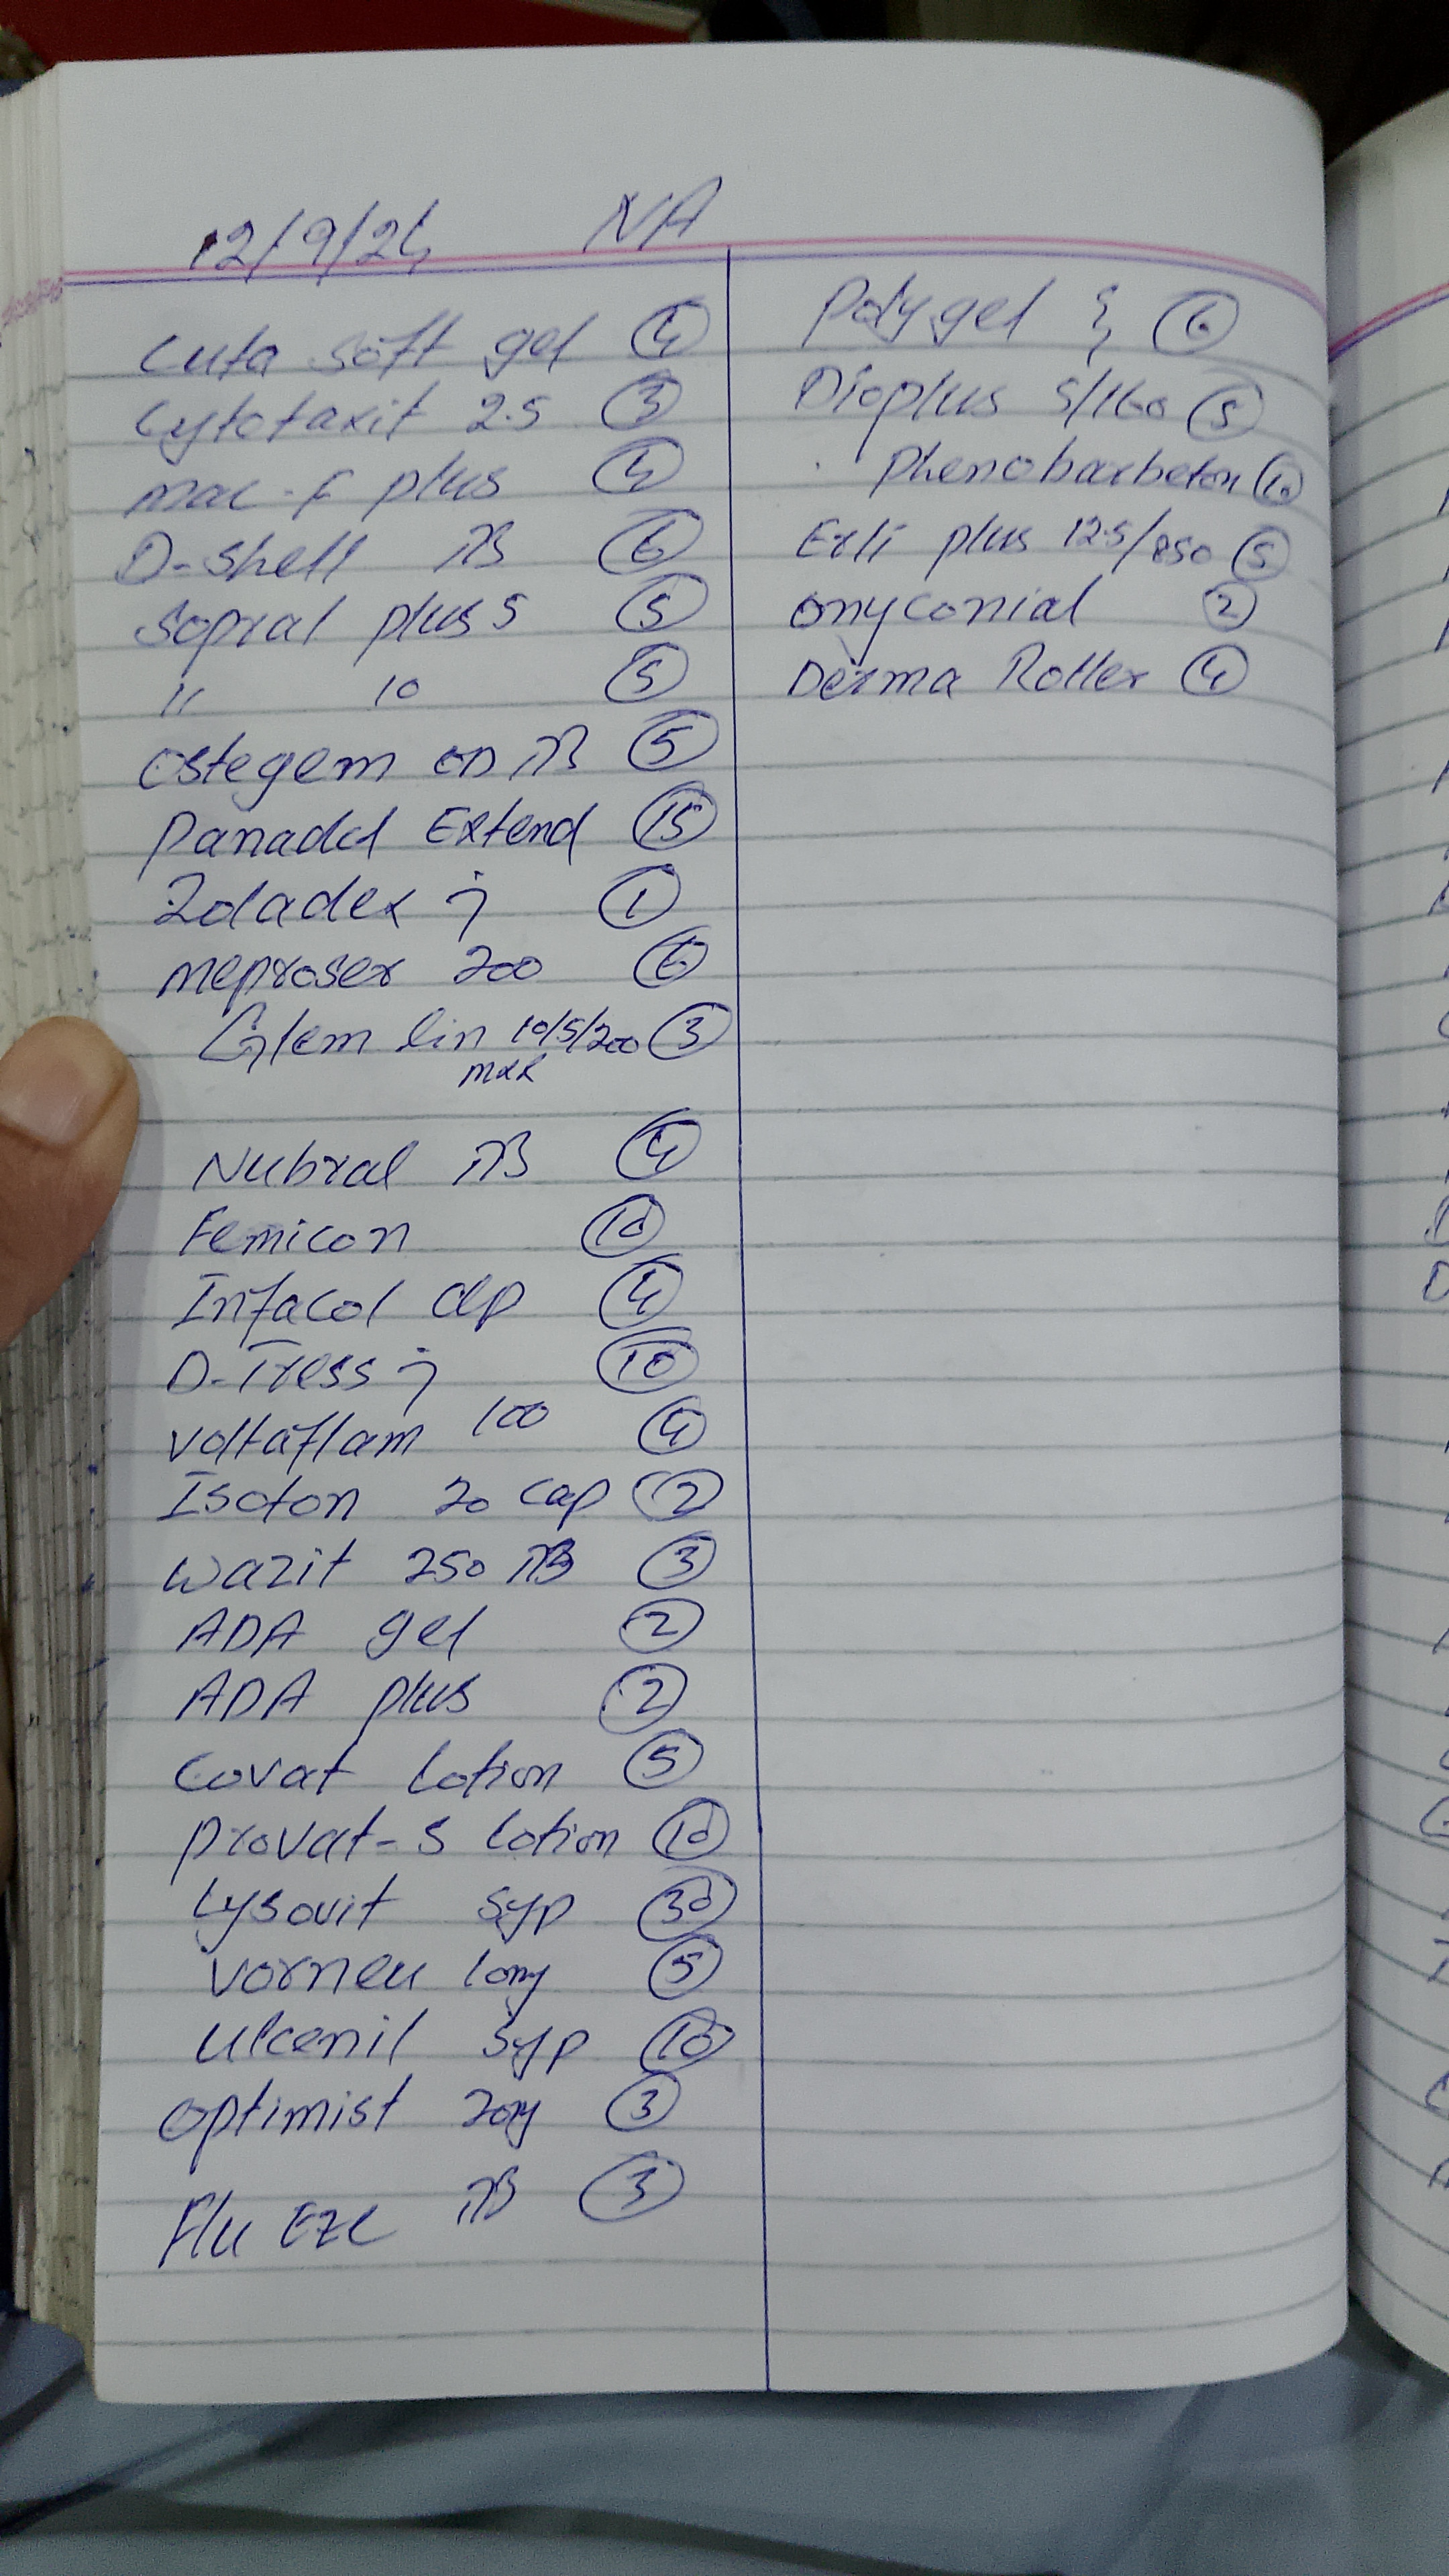 12/9/24 NA
Cuta soft gel 4
Cytotaxit 2.5 3
Mac-F plus 4
D-shell TB 6
Sopral plus 5 5
" 10 5
Ostegem OD TB 5
Panadol Extend 15
Zoladex inj 1
Meproser 200 6
Glem lin 10/5/200 3
mxr
Nubral TB 4
Femicon 10
Infacol dp 4
D-Tress inj 10
Voltaflam 100 4
Isoton 20 cap 2
Wazit 250 TB 3
ADA gel 2
ADA plus 2
Covat Lotion 5
Provat-S Lotion 10
Lysovit syp 30
Vorneu 10mg 5
Ulcenil syp 10
Optimist 20mg 3
Flu EZE TB 3
Polygel 6
Dioplus 5/160 5
Phenobarbeton 10
Erli plus 12.5/850 5
Onyconial 2
Derma Roller 4